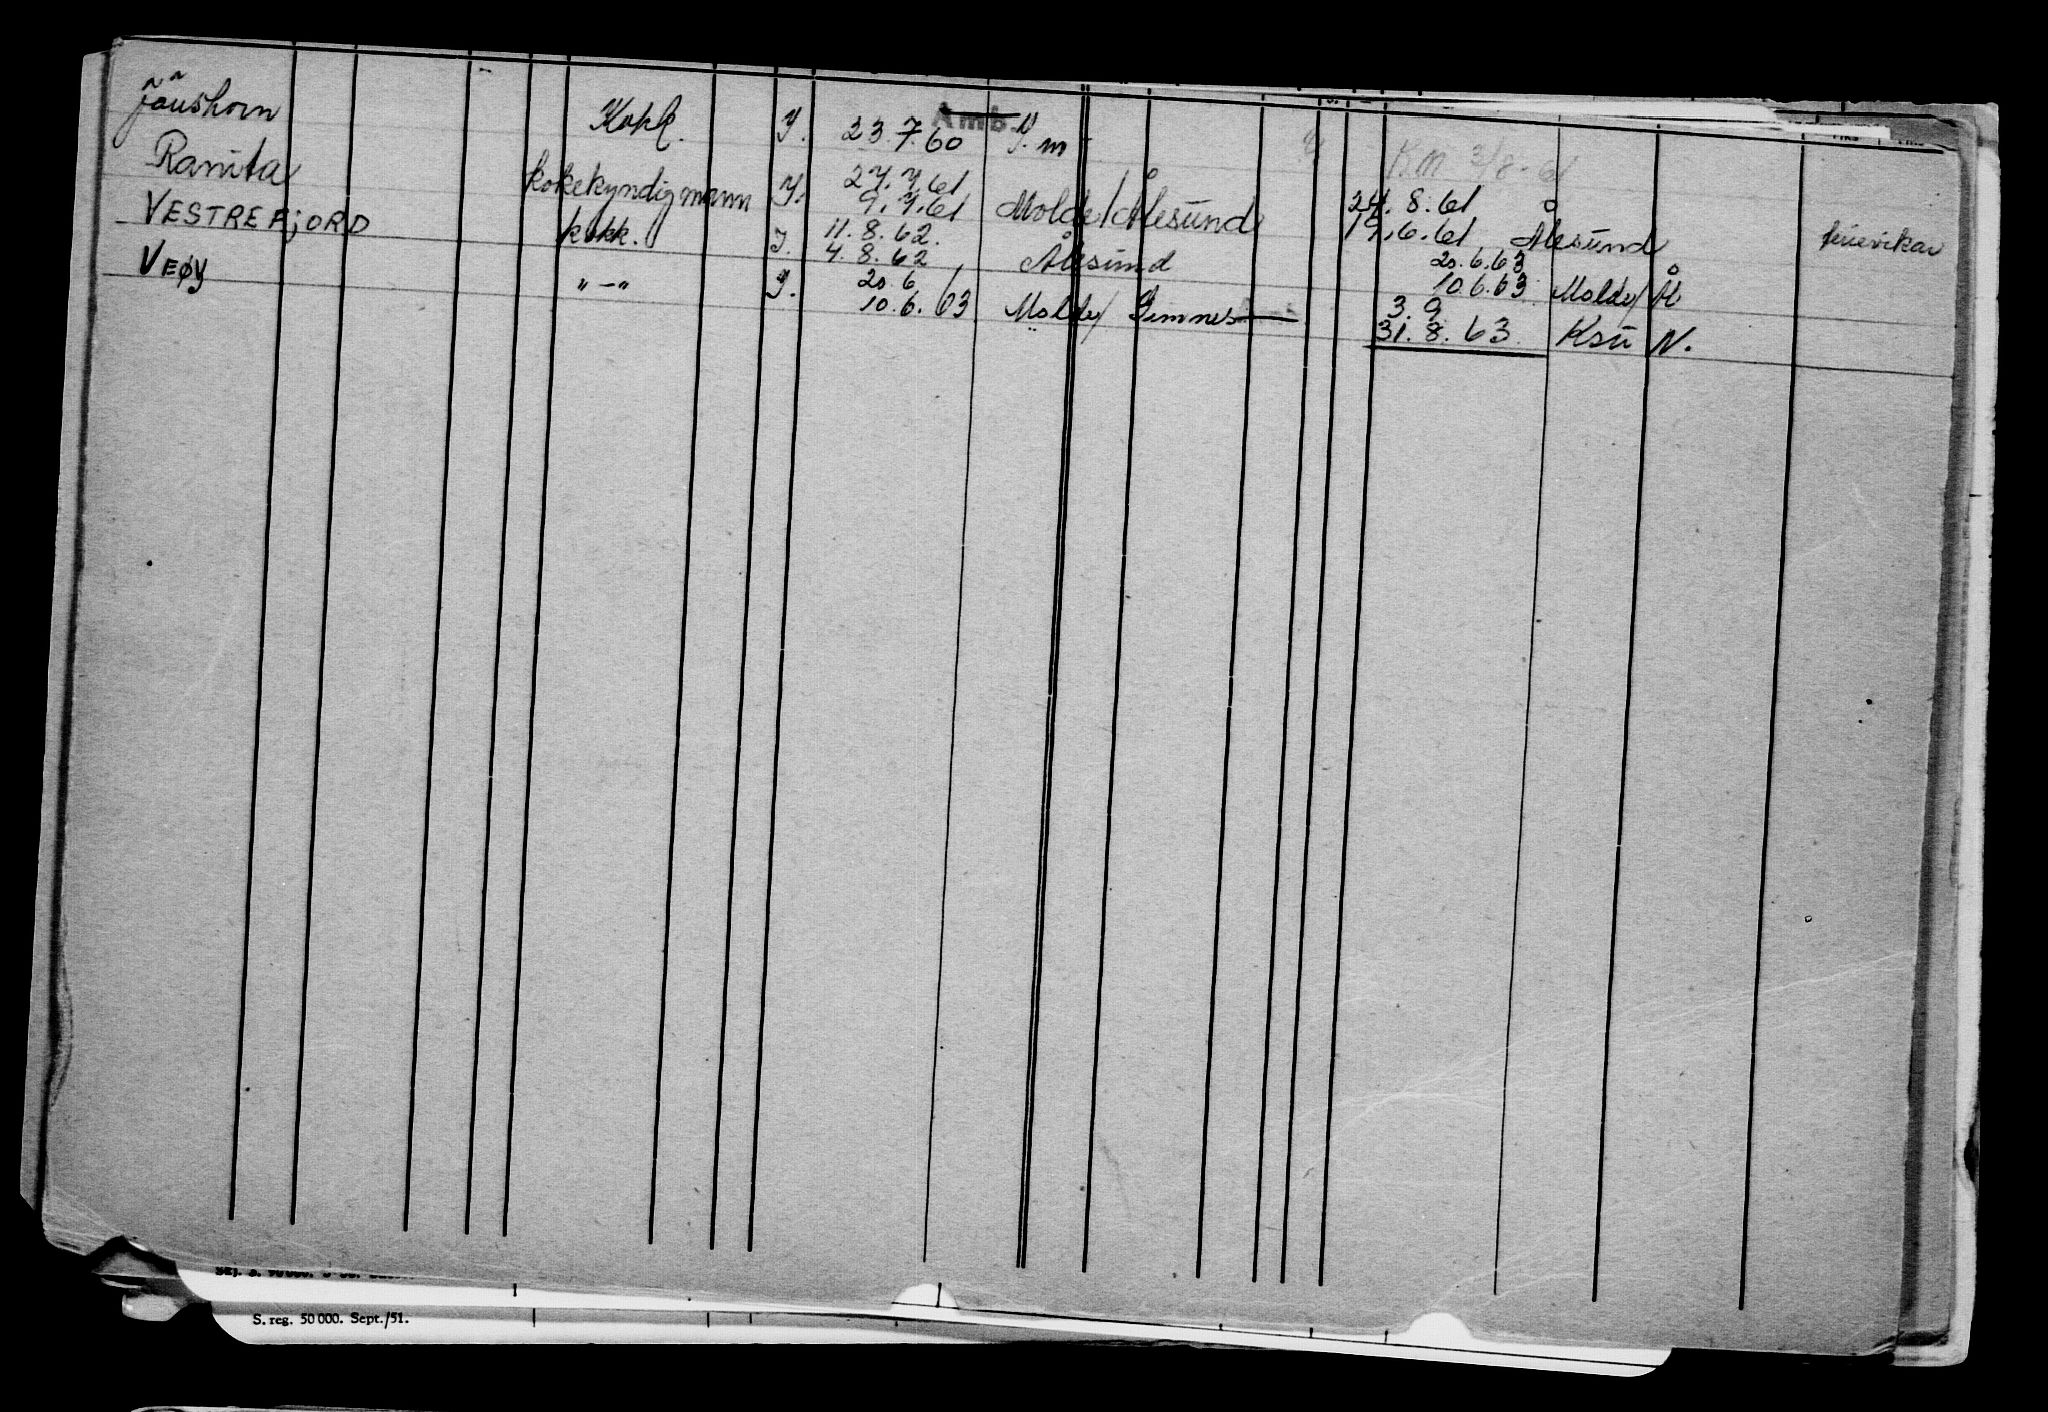 Kokk. 23.7.60 Amb. m
Ranita kokekyndig mann 27.7.61 24.8.61
9.7.61 Molde/Ålesund 19.6.61 Ålesund
VESTREFJORD kokk. 11.8.62. 20.6.63
4.8.62 Ålesund 10.6.63 Molde/Å
VEØY „ — „ 20.6 3.9
10.6.63 Molde/ Gimnes 31.8.63 Ksu N.
S. reg. 50 000. Sept./51.